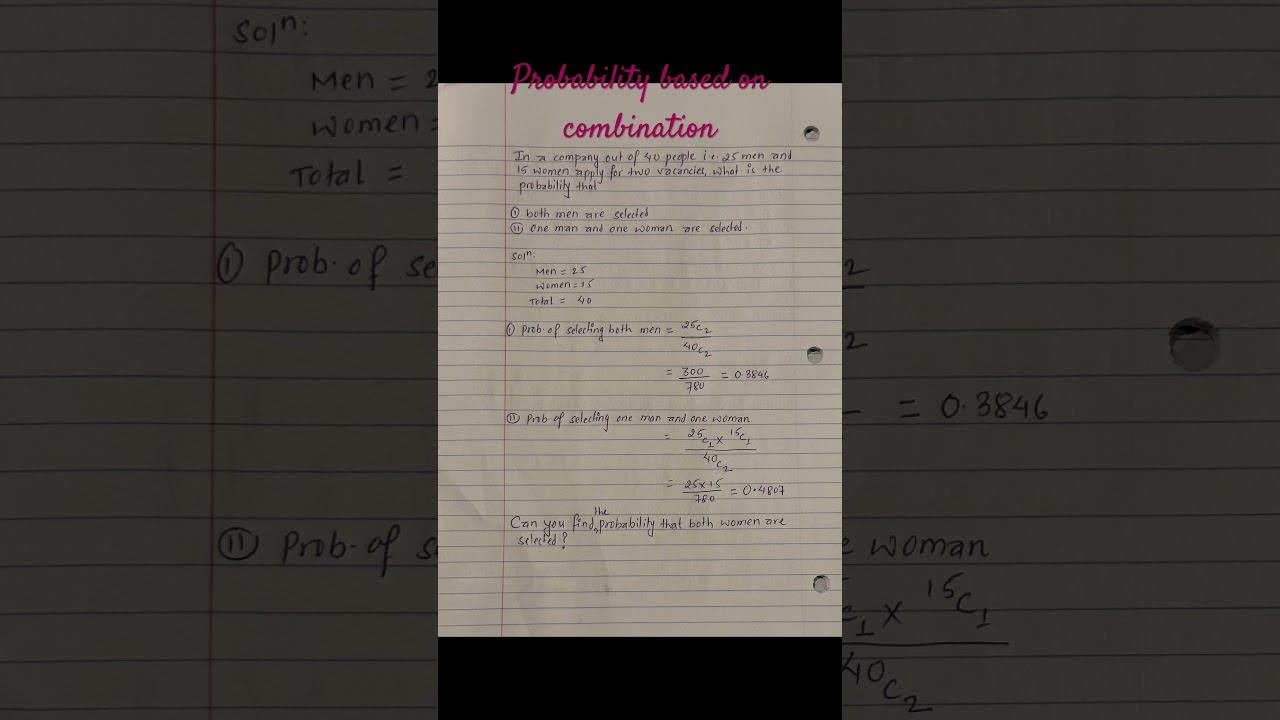 Probability based on
combination
In a company out of 40 people i.e. 25 men and
15 women apply for two vacancies, what is the
probability that
Ⓘ both men are selected
Ⓘⓘ one man and one woman are selected.
Solⁿ:
Men = 25
Women = 15
Total = 40
Ⓘ Prob. of selecting both men = ²⁵C₂
⁴⁰C₂
= 300 = 0.3846
780
Ⓘⓘ Prob. of selecting one man and one woman
= ²⁵C₁ × ¹⁵C₁
⁴⁰C₂
= 25×15 = 0.4807
780
Can you find the probability that both women are
selected?
Solⁿ:
Men = 2
Women =
Total =
Ⓘ Prob. of se
2
2
= 0.3846
Ⓘⓘ Prob. of s
e woman
C₁ × ¹⁵C₁
⁴⁰C₂